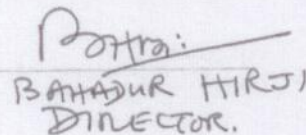 BAHADUR HIRJI
DIRECTOR.